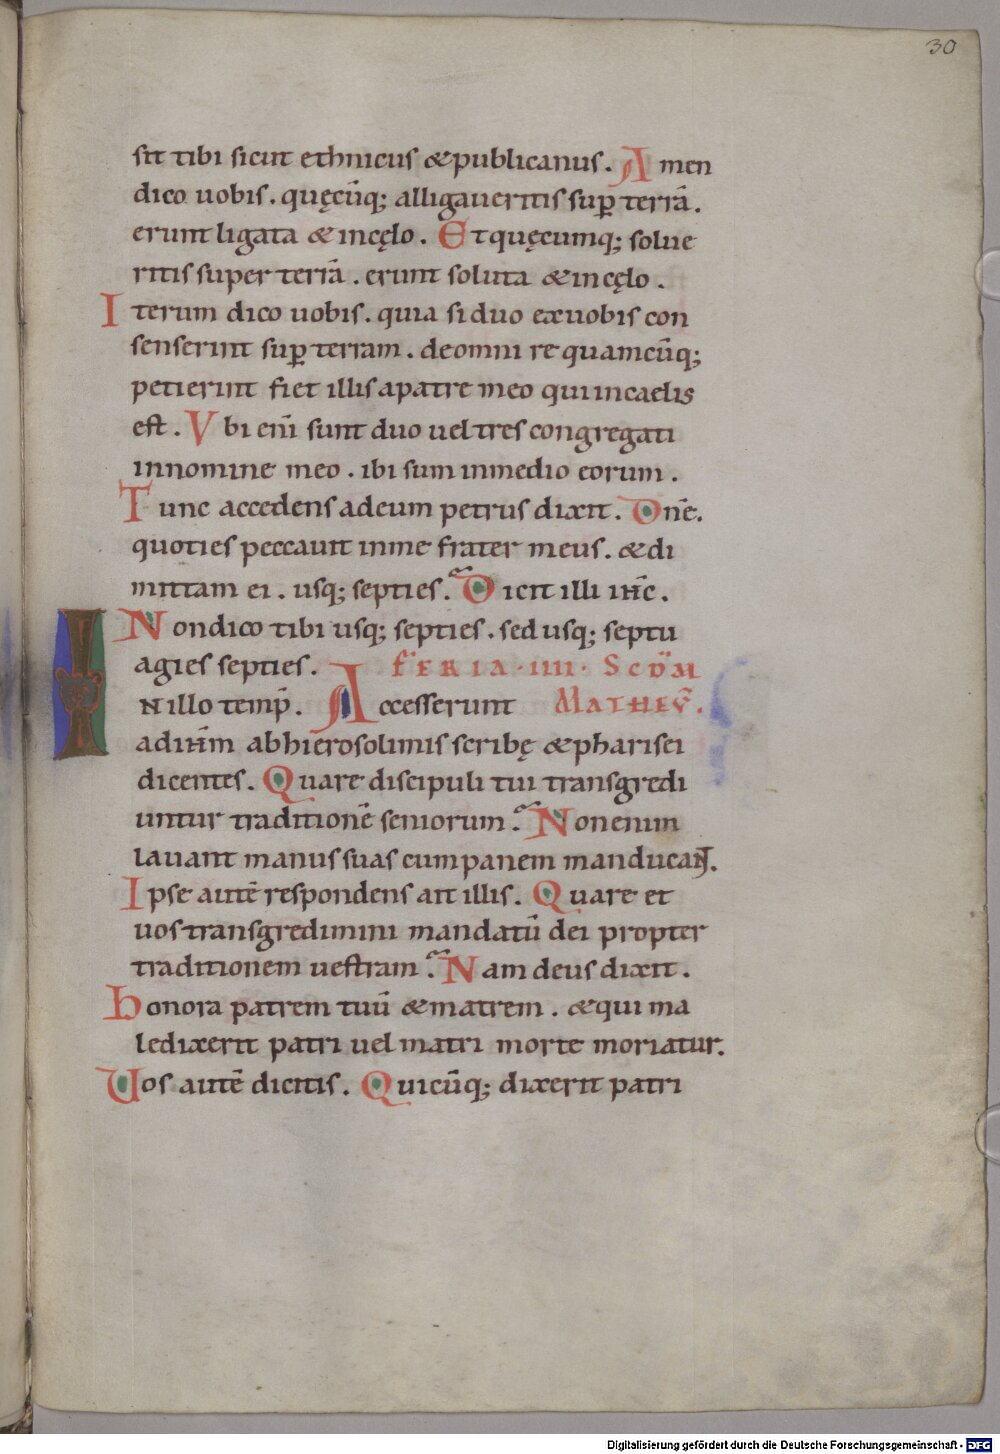 30
sit tibi sicut ethnicus & publicanus. Amen
dico uobis. quęcūq; alligaueritis sup̄ terrā.
erunt ligata & in cęlo. Et quęcumq; solue
ritis super terrā. erunt soluta & in cęlo.
Iterum dico uobis. quia si duo ex uobis con
senserint sup̄ terram. de omni re quamcūq;
petierint fiet illis a patre meo qui in caelis
est. Vbi enī sunt duo uel tres congregati
in nomine meo. ibi sum in medio eorum.
Tunc accedens ad eum petrus dixit. Dn̄e.
quoties peccauit in me frater meus. & di
mittam ei. usq; septies. Dicit illi ih̄c.
Non dico tibi usq; septies. sed usq; septu
agies septies. FERIA · IIII · SCD̄M
IN illo temp̄. Accesserunt MATHEV̄.
ad ih̄m ab hierosolimis scribę & pharisei
dicentes. Quare discipuli tui transgredi
untur traditionē seniorum. Non enim
lauant manus suas cum panem manducaNT.
Ipse autē respondens ait illis. Quare et
uos transgredimini mandatū dei propter
traditionem uestram. Nam deus dixit.
honora patrem tuū & matrem. & qui ma
ledixerit patri uel matri morte moriatur.
Uos autē dicitis. Quicūq; dixerit patri
Digitalisierung gefördert durch die Deutsche Forschungsgemeinschaft - DFG